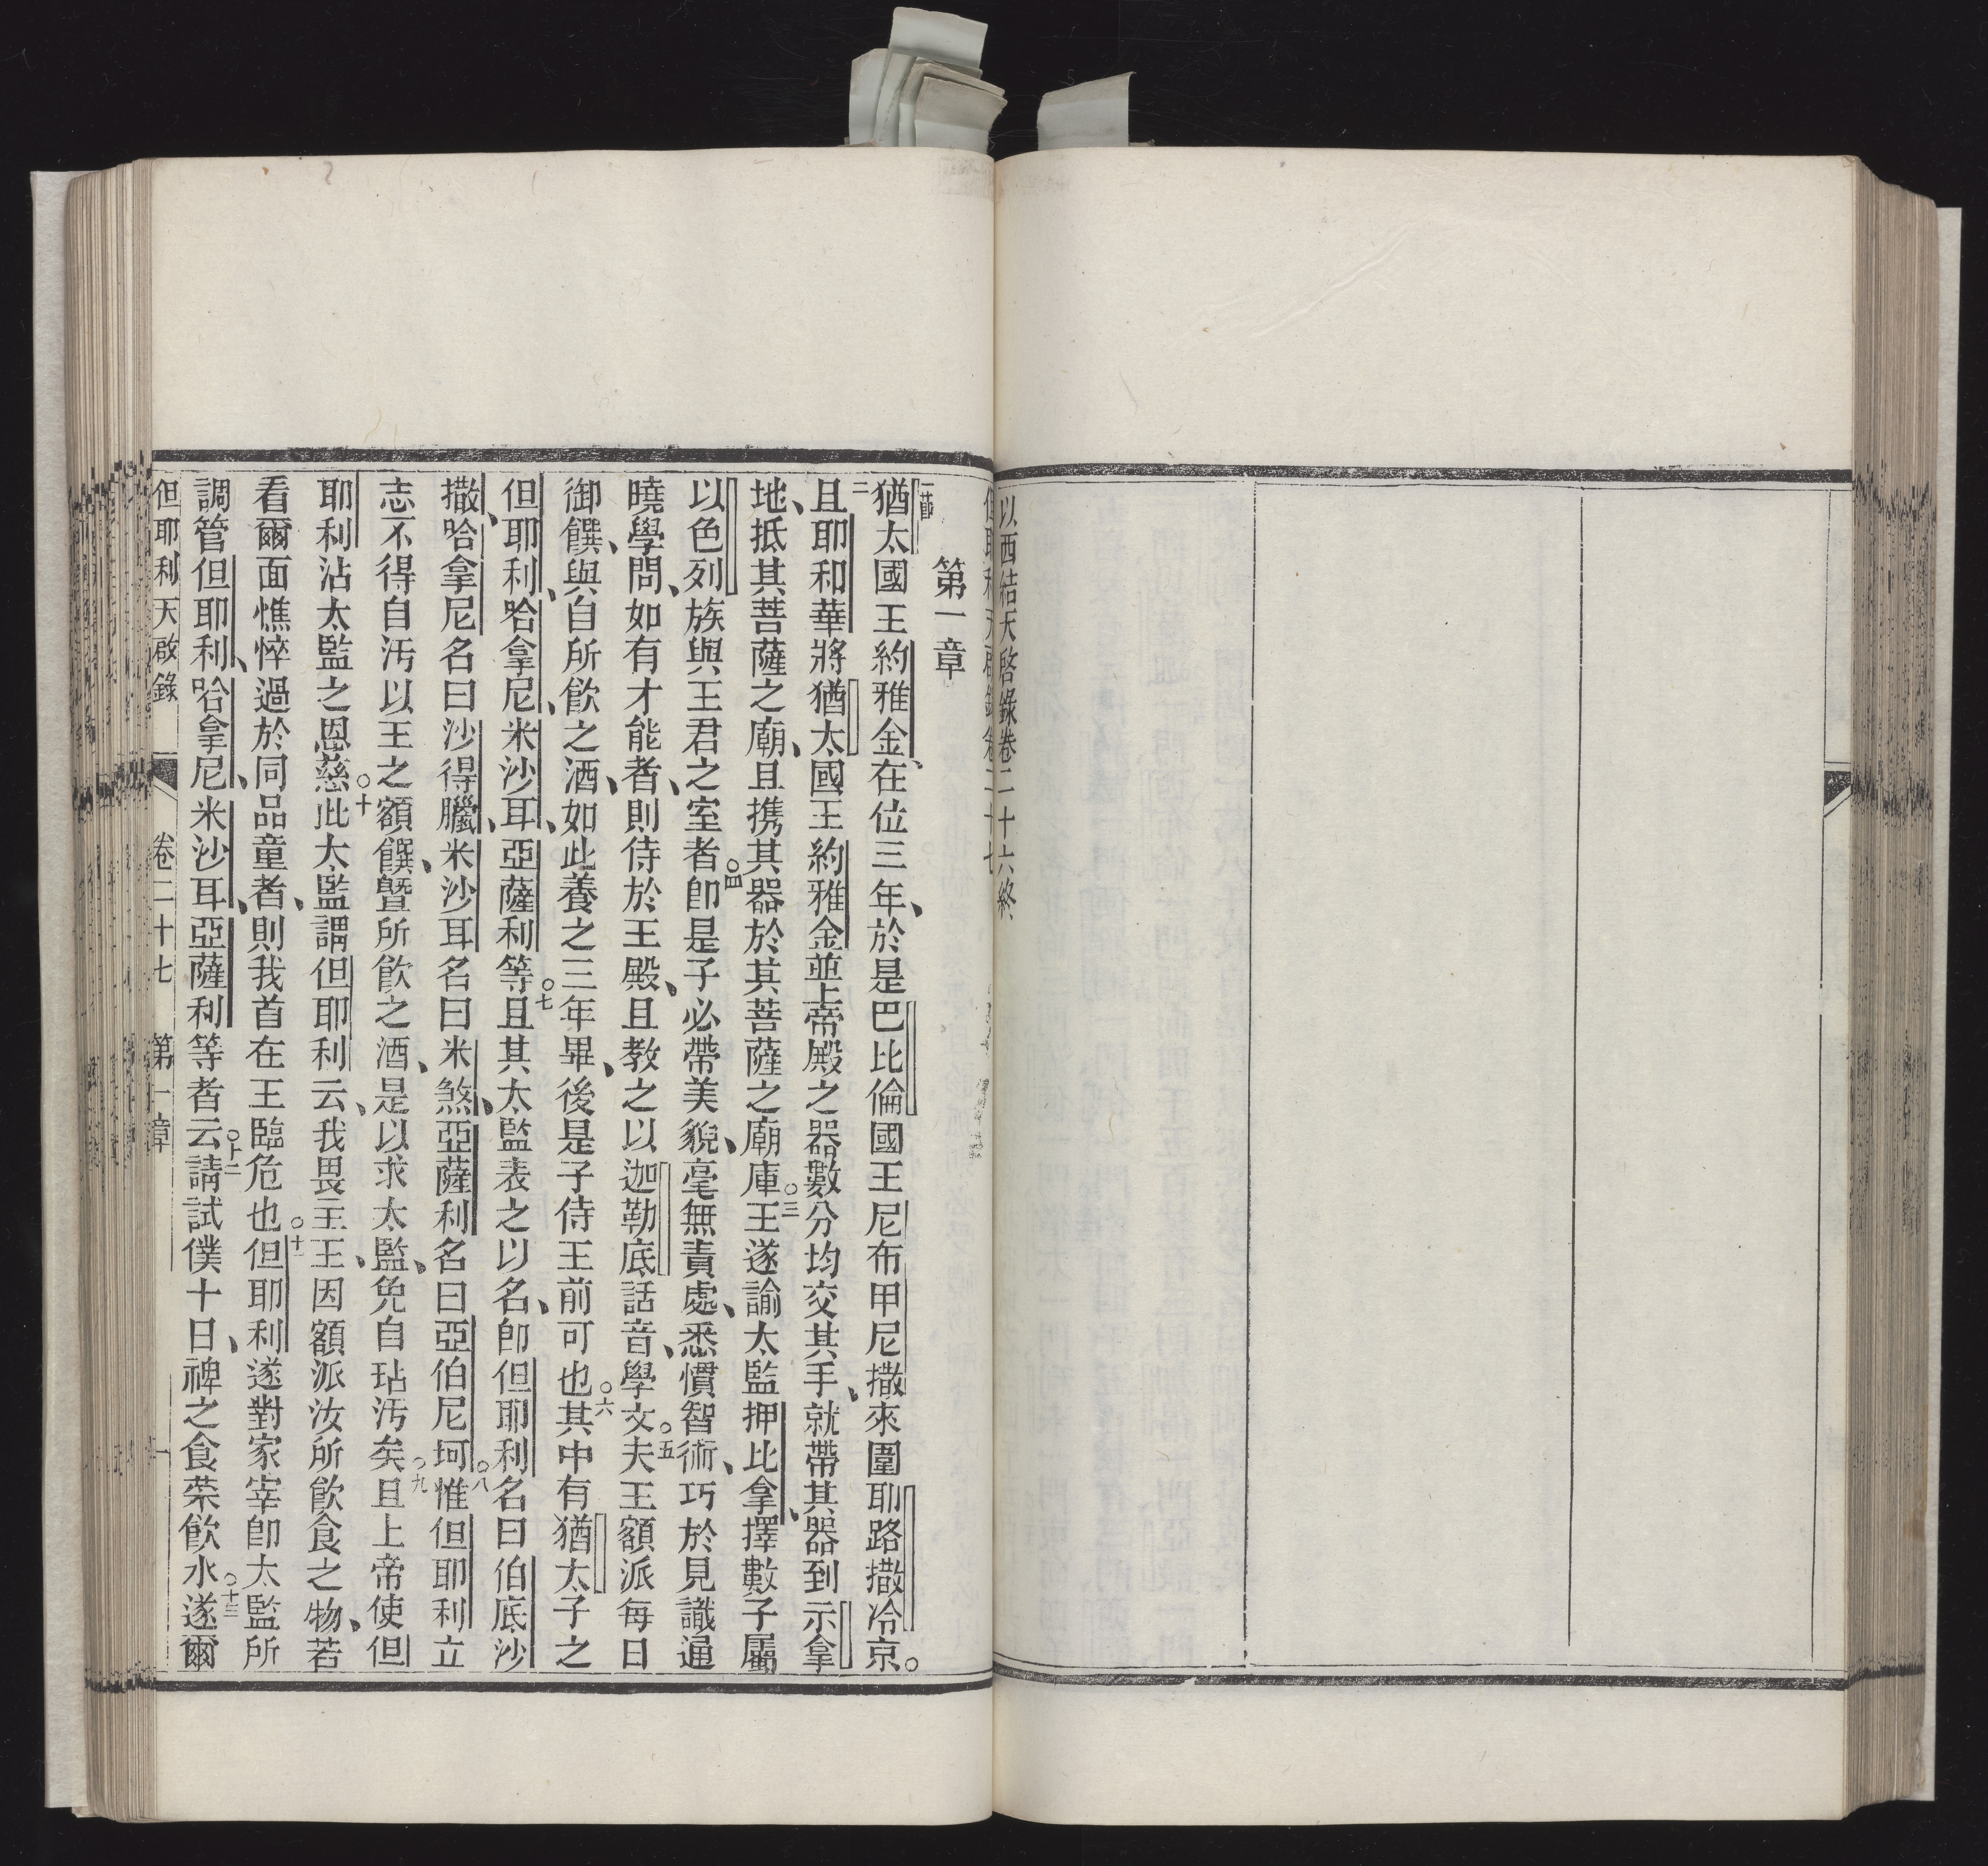 以西結天啓錄卷二十六終
但耶利天啟錄卷二十七
第一章
一節猶太國王約雅金、在位三年、於是巴比倫國王尼布甲尼撒來圍耶路撒冷京。
二且耶和華將猶太國王約雅金並上帝殿之器數分均交其手、就帶其器到示拿
地、抵其菩薩之廟、且携其器於其菩薩之廟庫○三王遂諭太監押比拿、擇數子屬
以色列族與王君之室者○四卽是子必帶美貌、毫無責處、悉慣智術、巧於見識通
曉學問、如有才能者、則侍於王殿、且教之以迦勒底話音、學文○五夫王額派每日
御饌、與自所飮之酒、如此養之三年畢、後是子侍王前可也○六其中有猶太子之
但耶利、哈拿尼、米沙耳、亞薩利等○七且其太監表之以名、卽但耶利名曰伯底沙
撒、哈拿尼名曰沙得臘、米沙耳名曰米煞、亞薩利名曰亞伯尼坷○八惟但耶利立
志不得自汚以王之額饌、曁所飮之酒、是以求太監、免自玷汚矣○九且上帝使但
耶利沾太監之恩慈○十此太監謂但耶利云、我畏主王、王因額派汝所飮食之物、若
看爾面憔悴、過於同品童者、則我首在王臨危也○十一但耶利遂對家宰卽太監所
調管但耶利、哈拿尼、米沙耳、亞薩利等者云○十二請試僕十日、裨之食菜飮水○十三遂爾
但耶利天啟錄 卷二十七 第一章 一